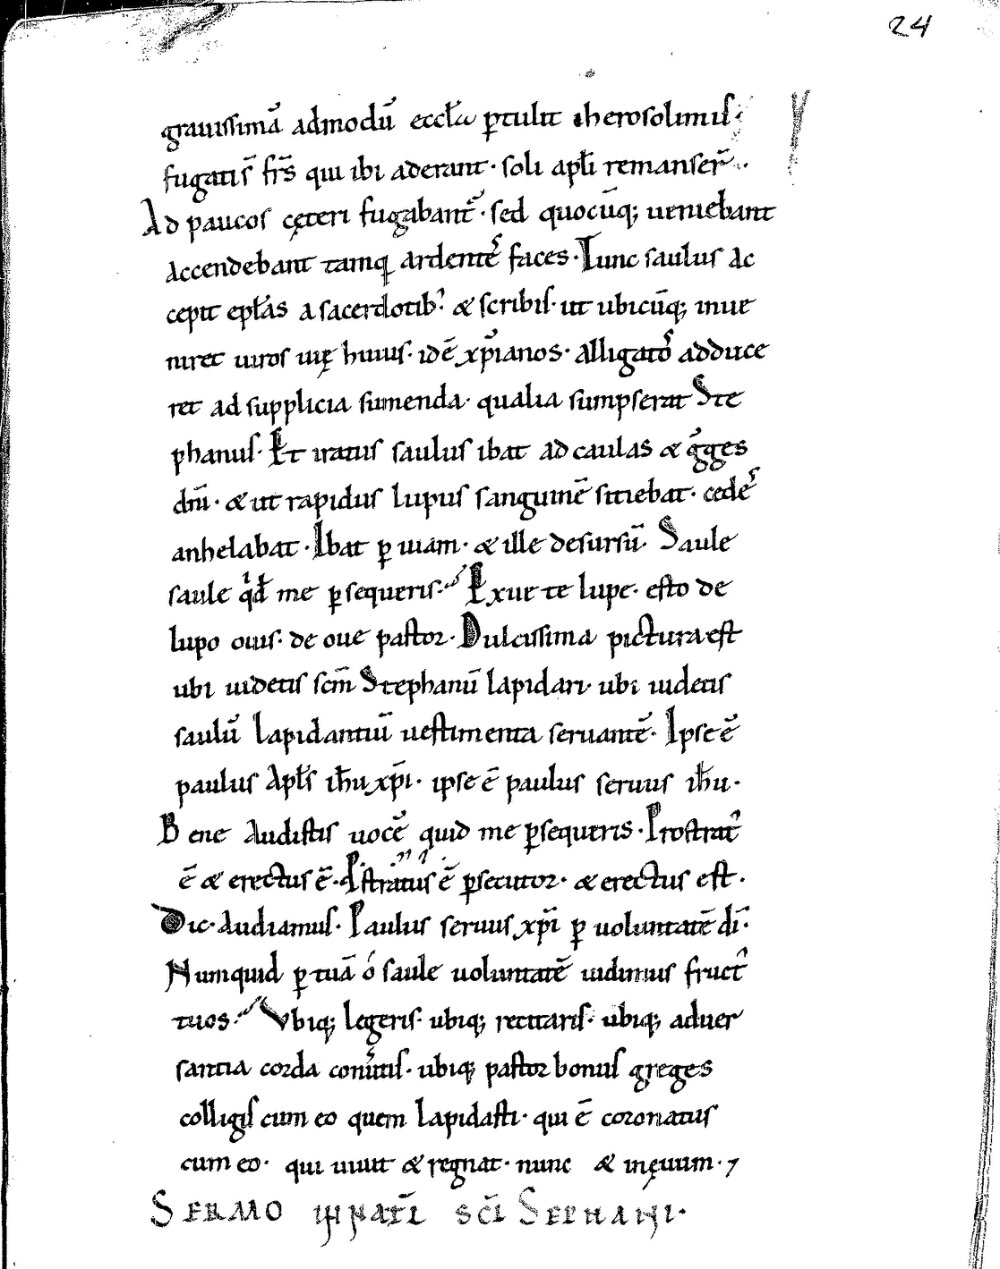 24
grauissimā admodū eccła ꝑtulit iherosolimis·
fugatis̄ fr̄s qui ibi aderant· soli apłi remanser̄··
Ad paucos cęteri fugabant᷑· sed quocūq; ueniebant
accendebant tamq̄ ardentēˢ faces· Tunc saulus ac
cepit epłas a sacerdotibꝰ & scribis· ut ubicūq; inue
niret uiros uię huius· idē xp̄ianos· alligatoˢ adduce
ret ad supplicia sumenda· qualia sumpserat Ste
phanus· Et iratus saulus ibat ad caulas & g̃ges
dn̄i· & ut rapidus lupus sanguinē sitiebat· cedēˢ
anhelabat· Ibat ꝑ uiam· & ille desursū· Saule
saule qͥd me ꝑsequeris· Exue te lupe· esto de
lupo ouis· de oue pastor· Dulcissima pictura est
ubi uidetis scm̄ Stephanū lapidari· ubi uidetis
saulū lapidantiū uestimenta seruantē· Ipse ē
paulus apłs ihu xp̄i· ipse ē paulus seruus ihu·
Bene audistis uocē quid me ꝑsequeris· Prostratꝰ
ē & erectus ē· Pstratus ē ꝑsecutor· & erectus est·
Dic· audiamus· Paulus seruus xp̄i ꝑ uoluntatē dī·
Numquid ꝑ tuā ó saule uoluntatē uidimus fructꝰ
tuos· Vbiq; legeris· ubiq; recitaris· ubiq; aduer
santia corda conũtis· ubiq; pastor bonus greges
colligis cum eo quem lapidasti· qui ē coronatus
cum eo· qui uiuit & regnat· nunc & in ęuum· 7
SERMO IN NATL̄ SCĪ STEPHANI·